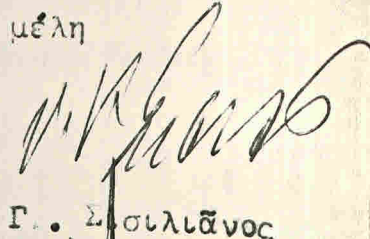 μέλη
Γ. Σισιλιᾶνος